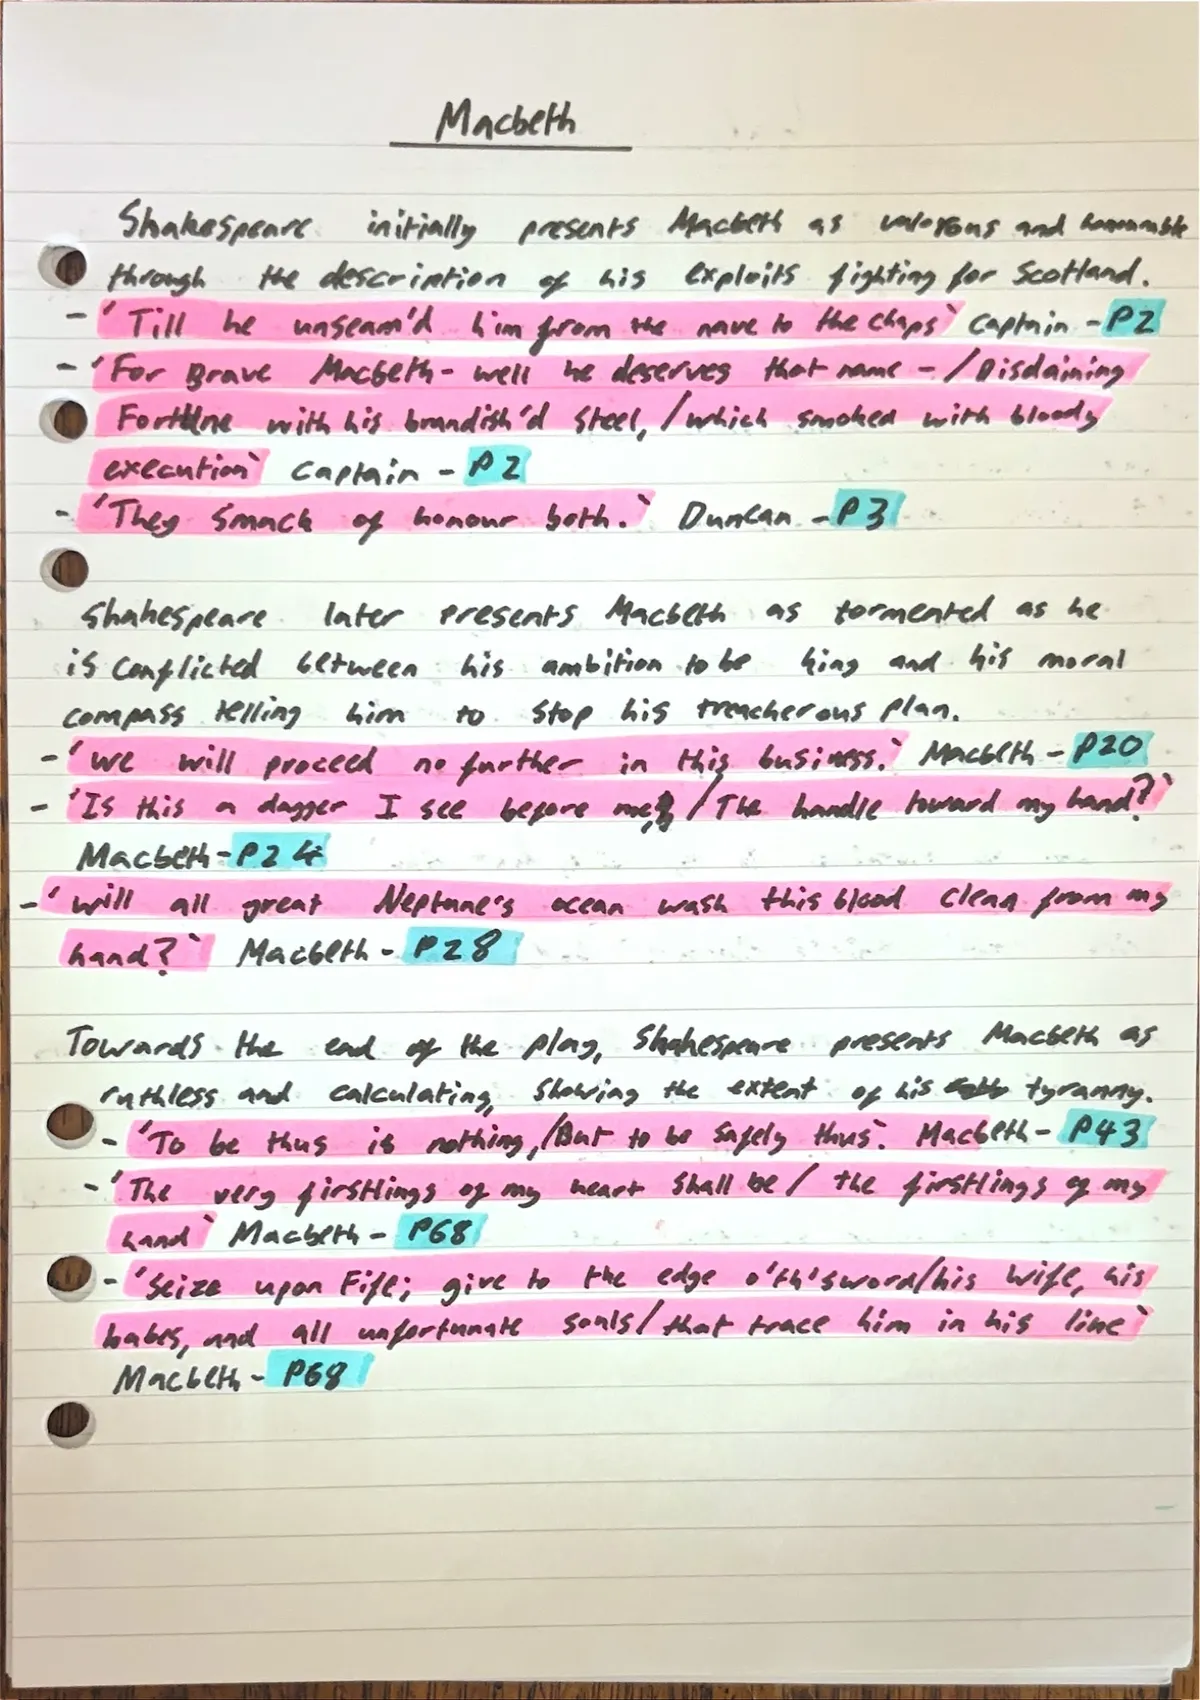 Macbeth
Shakespeare initially presents Macbeth as valorous and honourable
through the description of his exploits fighting for Scotland.
- 'Till he unseam'd him from the nave to the chaps' Captain - P2
- 'For Brave Macbeth - well he deserves that name - / Disdaining
Fortune with his brandish'd steel, / which smoked with bloody
execution' Captain - P2
- 'They smack of honour both.' Duncan - P3
Shakespeare later presents Macbeth as tormented as he
is conflicted between his ambition to be king and his moral
compass telling him to stop his treacherous plan.
- 'we will proceed no further in this business.' Macbeth - P20
- 'Is this a dagger I see before me, / The handle toward my hand?'
Macbeth - P24
- 'will all great Neptune's ocean wash this blood clean from my
hand?' Macbeth - P28
Towards the end of the play, Shakespeare presents Macbeth as
ruthless and calculating, showing the extent of his tyranny.
- 'To be thus is nothing, / But to be safely thus'. Macbeth - P43
- 'The very firstlings of my heart shall be / the firstlings of my
hand' Macbeth - P68
- 'Seize upon Fife; give to the edge o'th'sword / his wife, his
babes, and all unfortunate souls / that trace him in his line'
Macbeth - P68